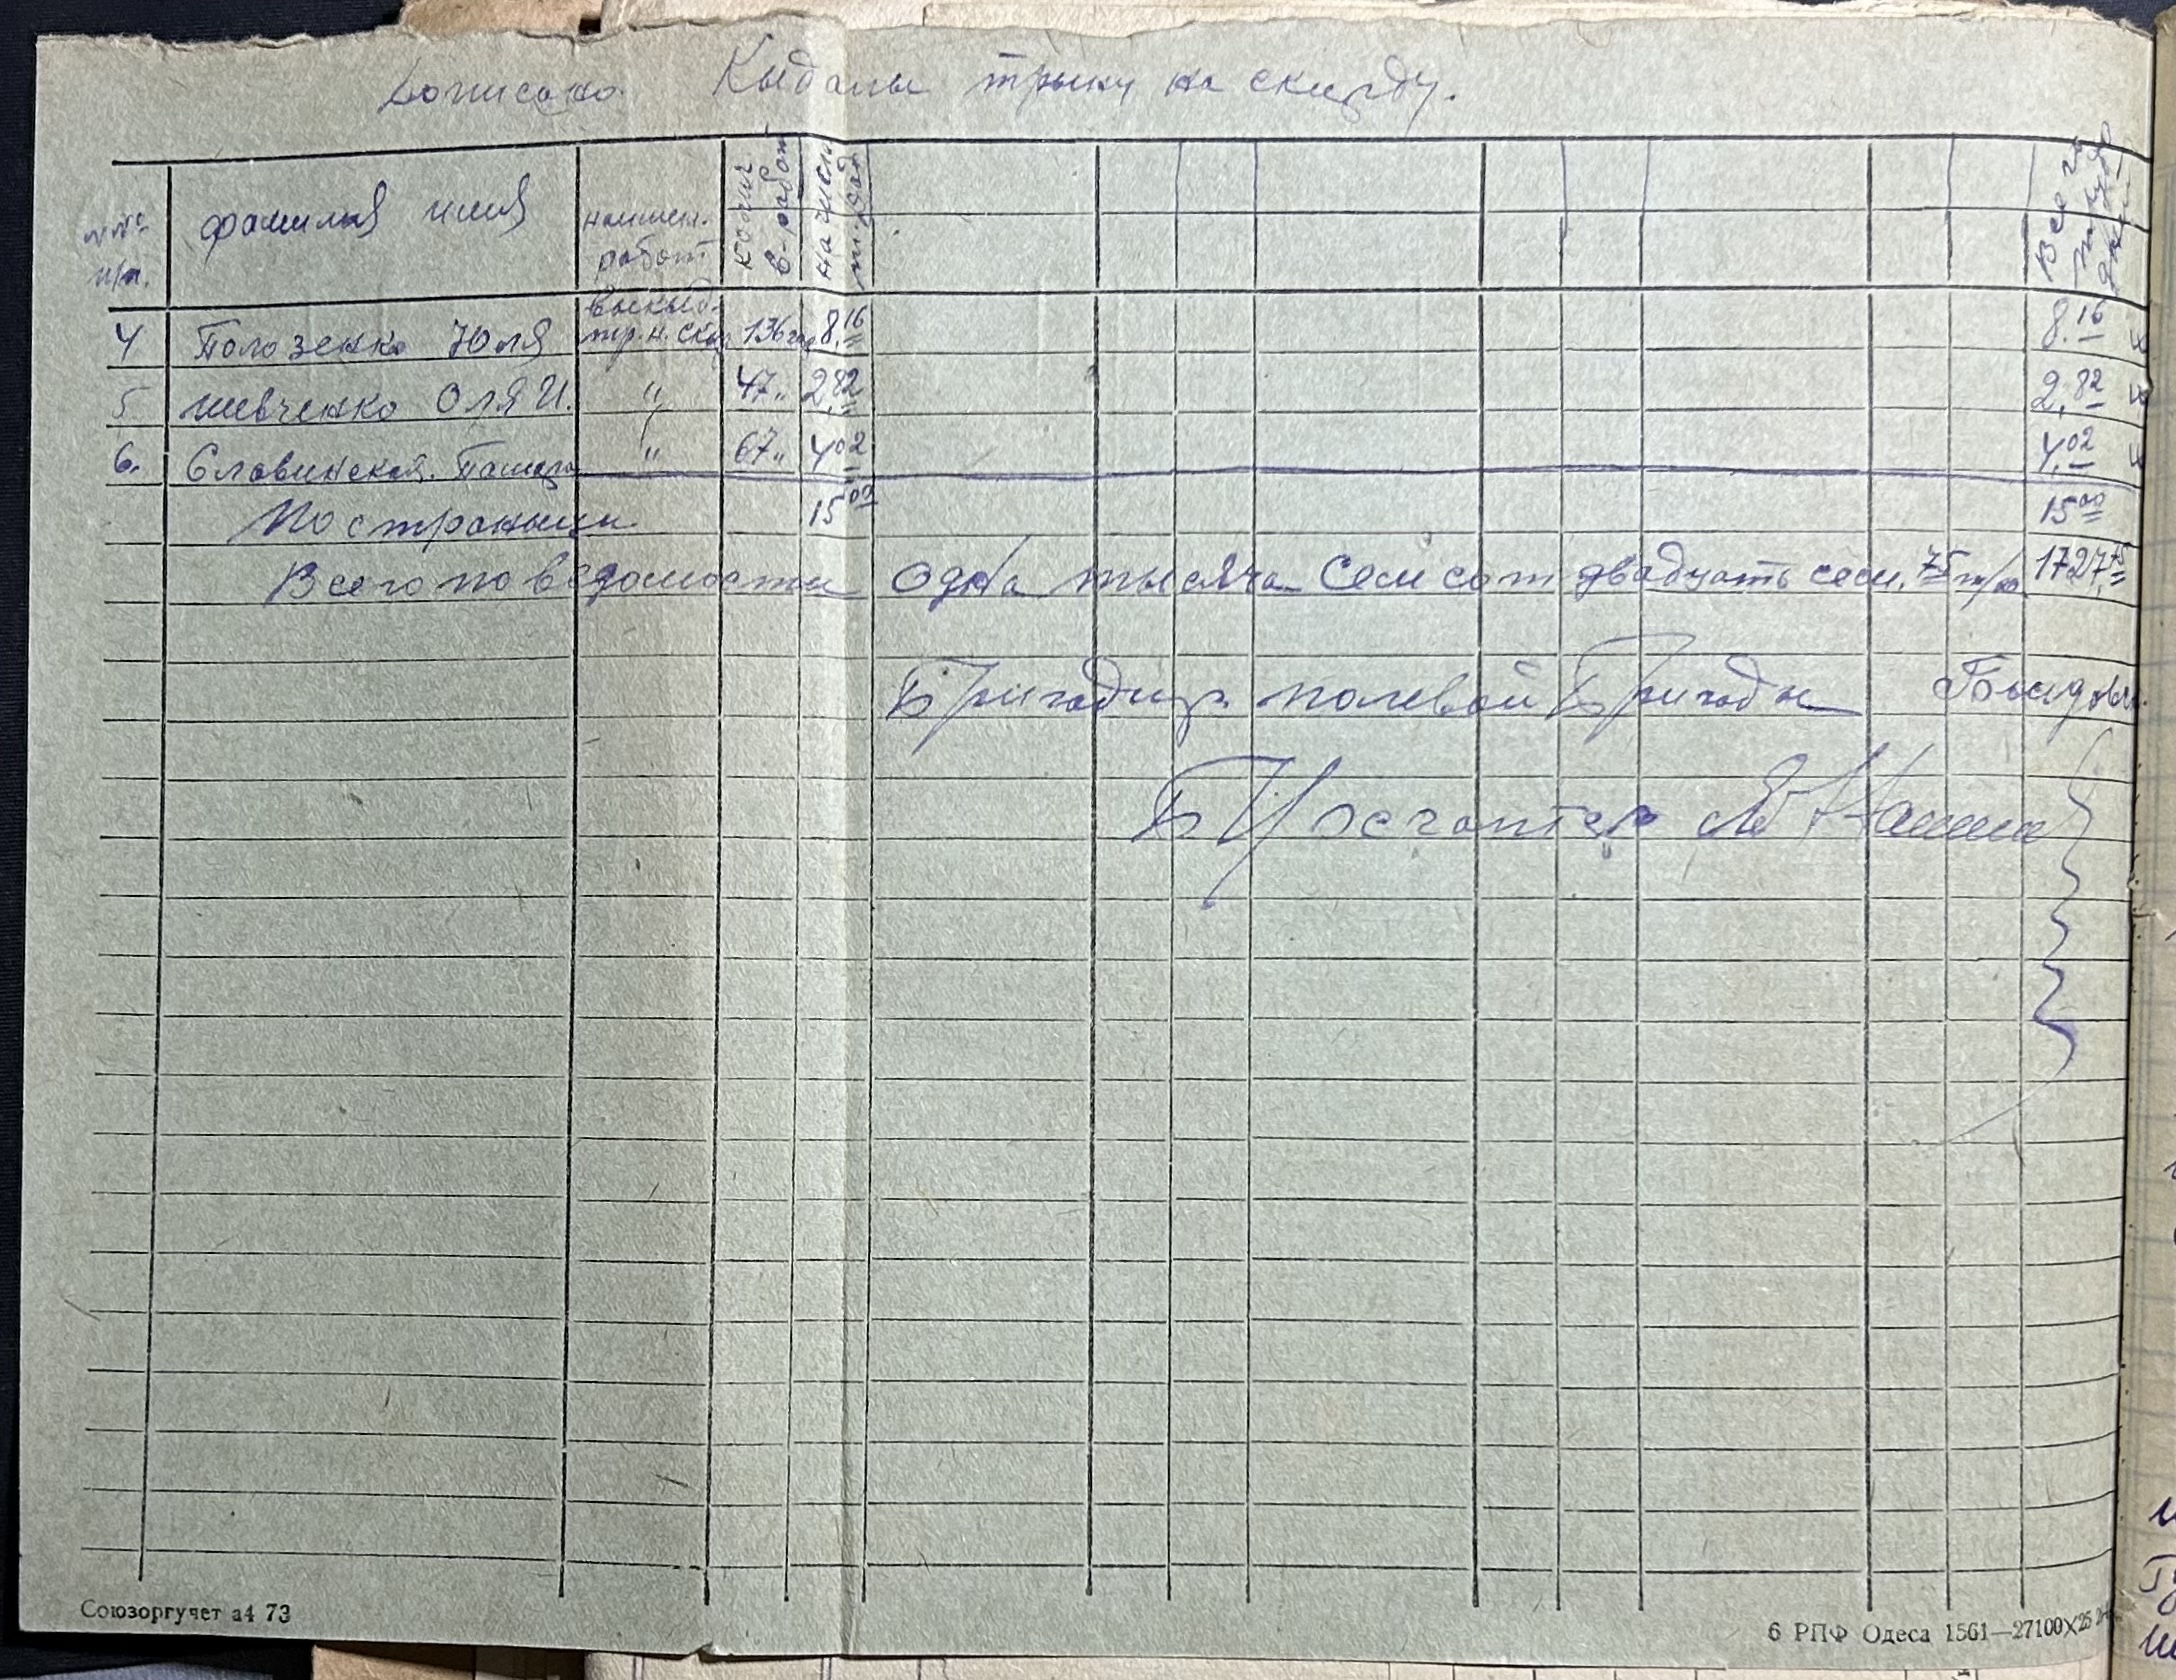 Дописано. Кыдалы трыну на скирду.
№№ п/п. фамилия имя наимен. работ колич в-работ начисл. тр.дod Всего труд дней
4 Полозенко Юля выкыд. тр.н.скир 136 га 8.16 8.16
5 шевченко Оля И. " 47" 2,82 2,82
6. Славинская. Паша " 67" 4 02 4,02
По страницы 15 00 15 00
Всего по ведомосты Одна тысяча Семсот двадцать семь. 75 т/дн 1727,75
Бригадир полевой Бригады
Бухгалтер
Союзоргучет а4 73
6 РПФ Одеса 1561—27100Х25